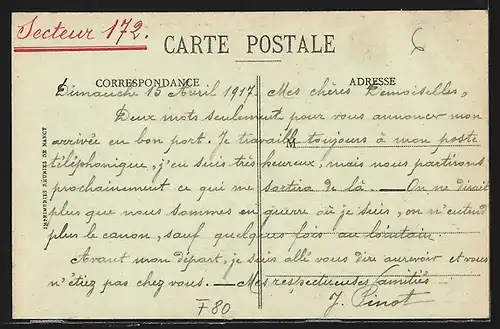 Secteur 172.
CARTE POSTALE
6
CORRESPONDANCE
ADRESSE
Dimanche 15 Avril 1917. Mes chères Demoiselles,
Deux mots seulement pour vous annoncer mon
arrivée en bon port. Je travaille toujours à mon poste
M
téléphonique, j'en suis très heureux; mais nous partirons
prochainement ce qui me sortira de là. — On ne dirait
plus que nous sommes en guerre où je suis, on n'entend
plus le canon, sauf quelques fois au lointain.
Avant mon départ, je suis allé vous dire aurevoir et vous
n'étiez pas chez vous. — Mes respectueuses amitiés
J. Pinot
F80
IMPRIMERIES RÉUNIES DE NANCY